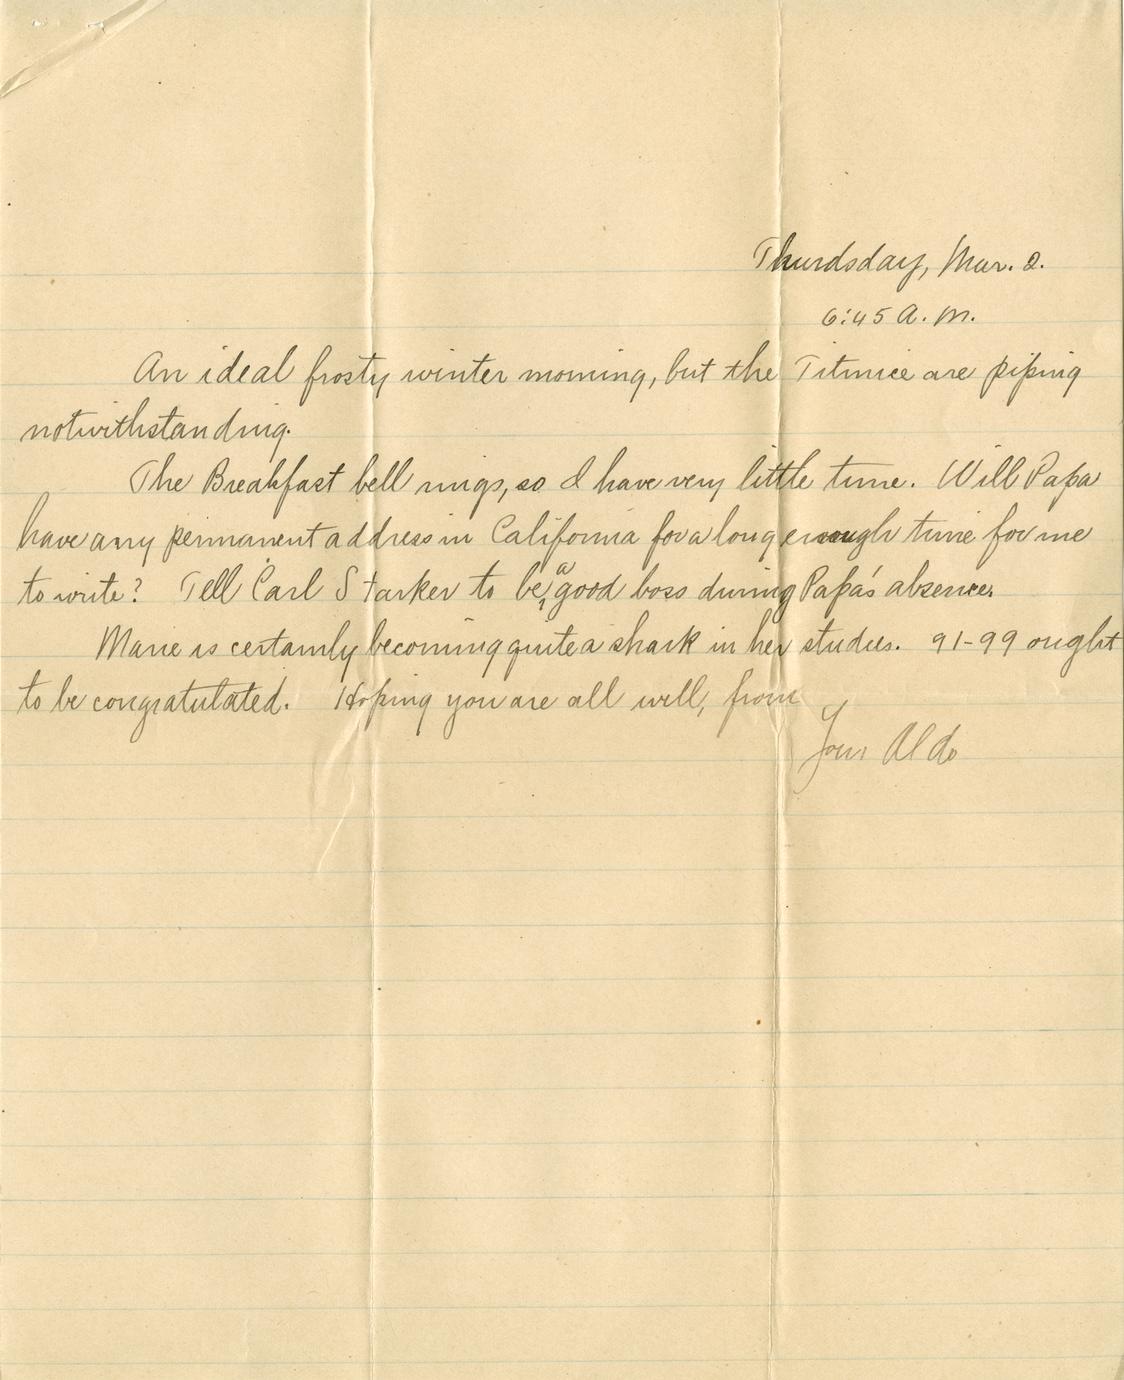 Thurdsday, Mar. 2.
6:45 A.M.
An ideal frosty winter morning, but the Titmice are piping
notwithstanding.
The Breakfast bell rings, so I have very little time. Will Papa
have any permanent address in California for a long enough time for me
to write? Tell Carl Starker to be a good boss during Papa's absence.
Marie is certainly becoming quite a shark in her studies. 91-99 ought
to be congratulated. Hoping you are all well, from
Your Aldo